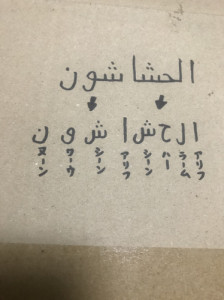 الحشاشون
ا ل ح ش ا ش و ن
アリフ
ラーム
ハー
シーン
アリフ
シーン
ワーウ
ヌーン